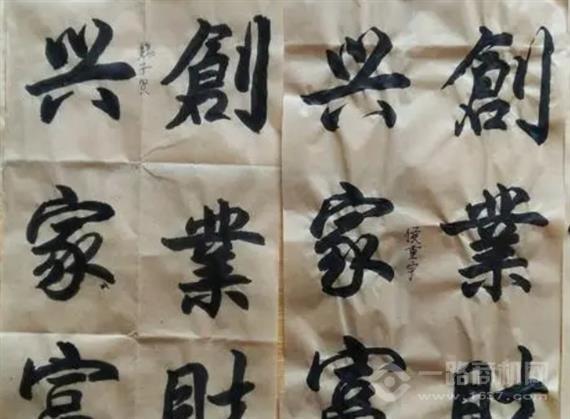 創業財
兴家富
侯重宇
創業財
兴家富
一路商机网
www.1637.com